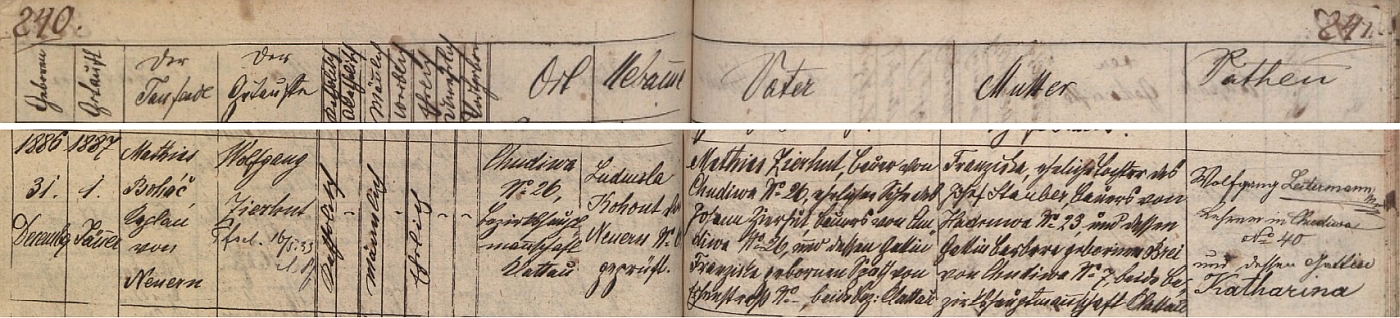 240.
241.
Geboren
Getauft
Der
Taufende
Der
Getaufte
Katholisch
Männlich
Weiblich
Ehelich
Unehelich
Ort
Hebamme
Vater
Mutter
Pathen
1886
31.
Dezember
1887
1.
Jänner
Mathias
Boháč
Kaplan
von
Neuern
Wolfgang
Zierhut
Katholisch
männlich
Ehelich
Chudiwa
No 26,
Bezirkshaupt-
mannschaft
Klattau
Ludmila
Kohout
Neuern No
geprüft.
Mathias Zierhut, Bauer von
Chudiwa No 26, ehelicher Sohn des
Johann Zierhut Bauers von Chu-
diwa No 26, und dessen Gattin
Franziska gebornen von
No beide Bez: Klattau
Franziska, eheliche Tochter des
Josef Stauber, Bauers von
No 23 und dessen
Gattin Barbara gebornen
von Chudiwa No 7, beide Be-
zirkshauptmannschaft Klattau
Wolfgang Ledermann,
Lehrer in Chudiwa
No 40
und dessen Gattin
Katharina